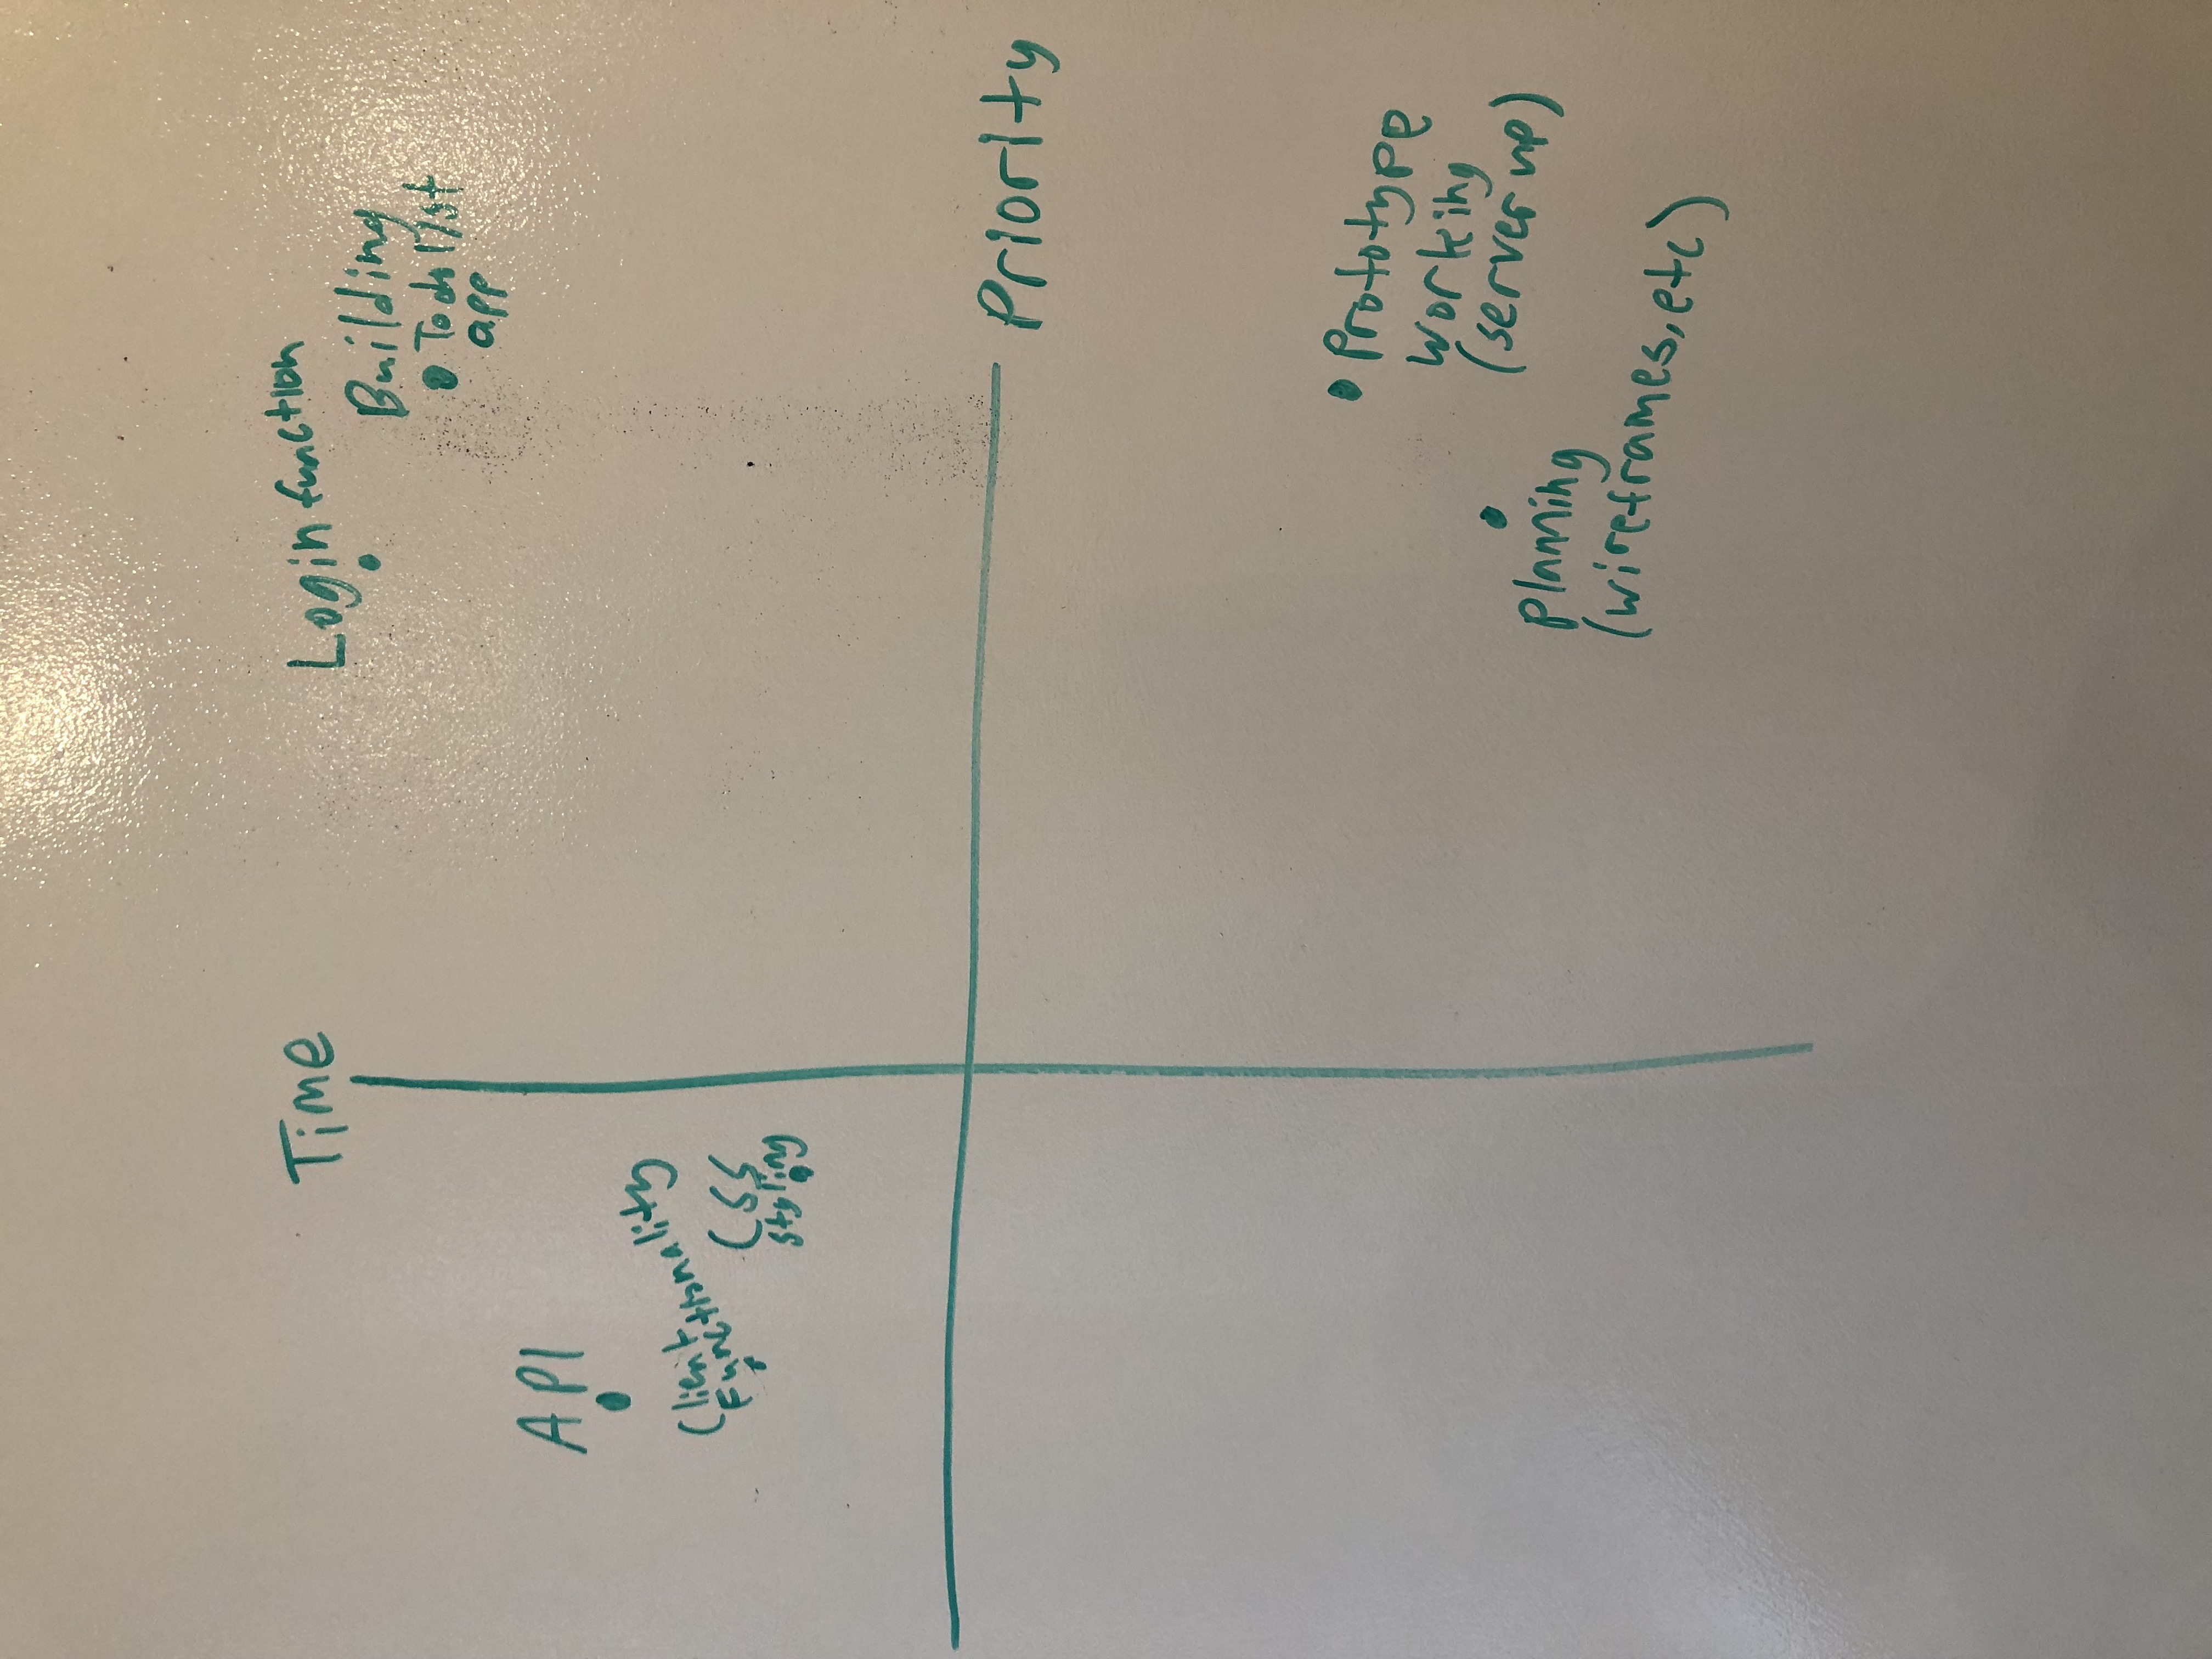 Time
Login function
Building
Todo list
app
API
Client
Functionality
CSS
styling
Priority
Prototype
working
(server up)
planning
(wireframes, etc)